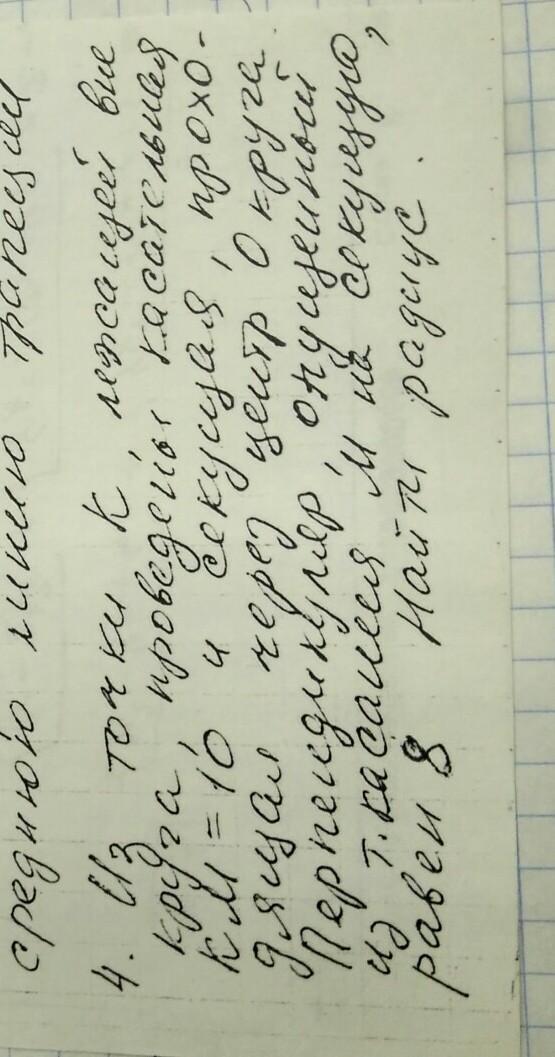 среднюю линию трапеции
4. Из точки К, лежащей вне
круга, проведены касательная
КМ = 10 и секущая, прохо-
дящая через центр О круга.
Перпендикуляр, опущенный
из т. касания М на секущую,
равен 8 Найти радиус.